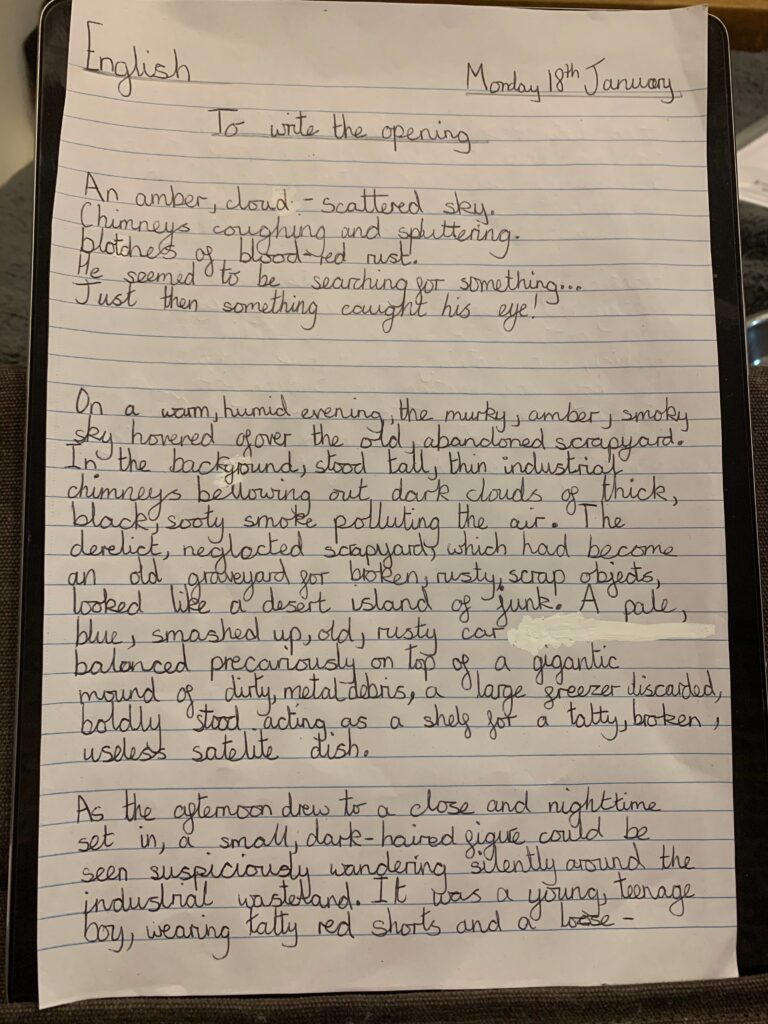 English
Monday 18th January
To write the opening
An amber, cloud - scattered sky.
Chimneys coughing and spluttering.
blotches of blood-red rust.
He seemed to be searching for something...
Just then something caught his eye!
On a warm, humid evening, the murky, amber, smoky
sky hovered over the old, abandoned scrapyard.
In the background, stood tall, thin industrial
chimneys bellowing out dark clouds of thick,
black, sooty smoke polluting the air. The
derelict, neglected scrapyard, which had become
an old graveyard for broken, rusty, scrap objects,
looked like a desert island of junk. A pale,
blue, smashed up, old, rusty car
balanced precariously on top of a gigantic
mound of dirty, metal debris, a large freezer discarded,
boldly stood acting as a shelf for a tatty, broken,
useless satelite dish.
As the afternoon drew to a close and nighttime
set in, a small, dark-haired figure could be
seen suspiciously wandering silently around the
industrial wasteland. It was a young, teenage
boy, wearing tatty red shorts and a loose -